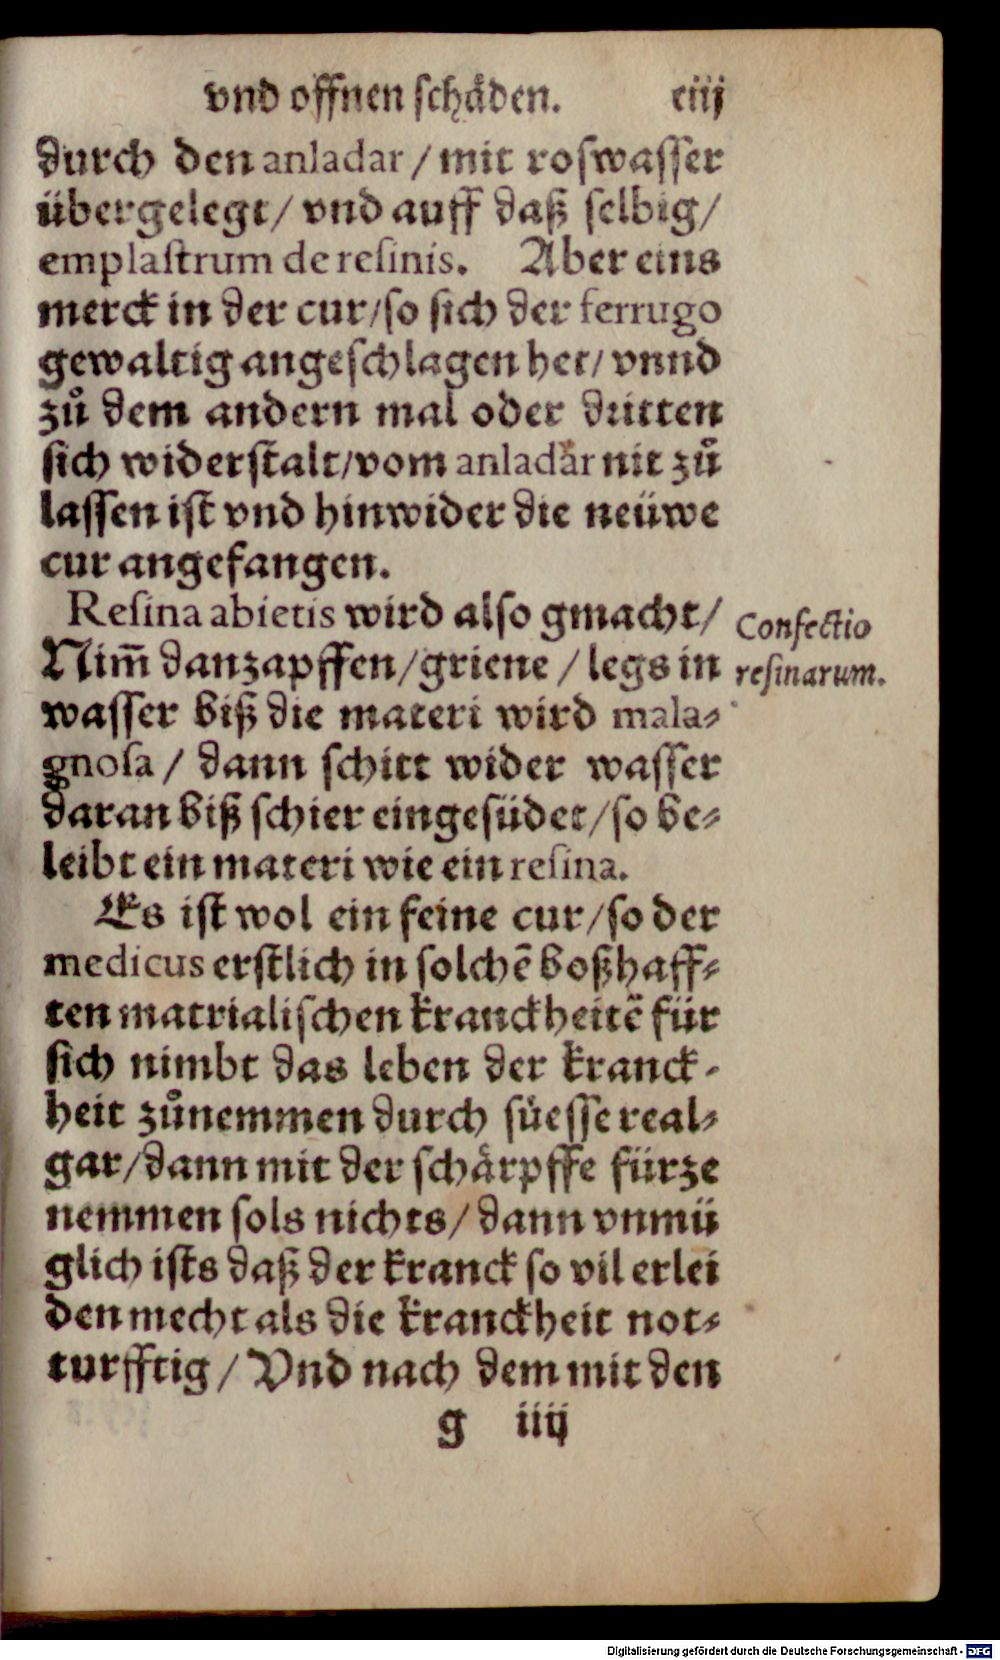 vnd offnen schåden. ciij
durch den anladar / mit roswasser
übergelegt / vnd auff daß selbig /
emplastrum de resinis. Aber eins
merck in der cur / so sich der ferrugo
gewaltig angeschlagen het / vnnd
zů dem andern mal oder dritten
sich widerstalt / vom anladar nit zů
lassen ist vnd hinwider die neüwe
cur angefangen.
Resina abietis wird also gmacht /
Nim̃ danzapffen / griene / legs in
wasser biß die materi wird mala⸗
gnosa / dann schitt wider wasser
daran biß schier eingesüdet / so be⸗
leibt ein materi wie ein resina.
Confectio
resinarum.
Es ist wol ein feine cur / so der
medicus erstlich in solchẽ boßhaff⸗
ten matrialischen kranckheitẽ für
sich nimbt das leben der kranck⸗
heit zůnemmen durch süesse real⸗
gar / dann mit der schårpffe fürze
nemmen sols nichts / dann vnmü
glich ists daß der kranck so vil erlei
den mecht als die kranckheit not⸗
turfftig / Vnd nach dem mit den
g iiij
Digitalisierung gefördert durch die Deutsche Forschungsgemeinschaft - DFG